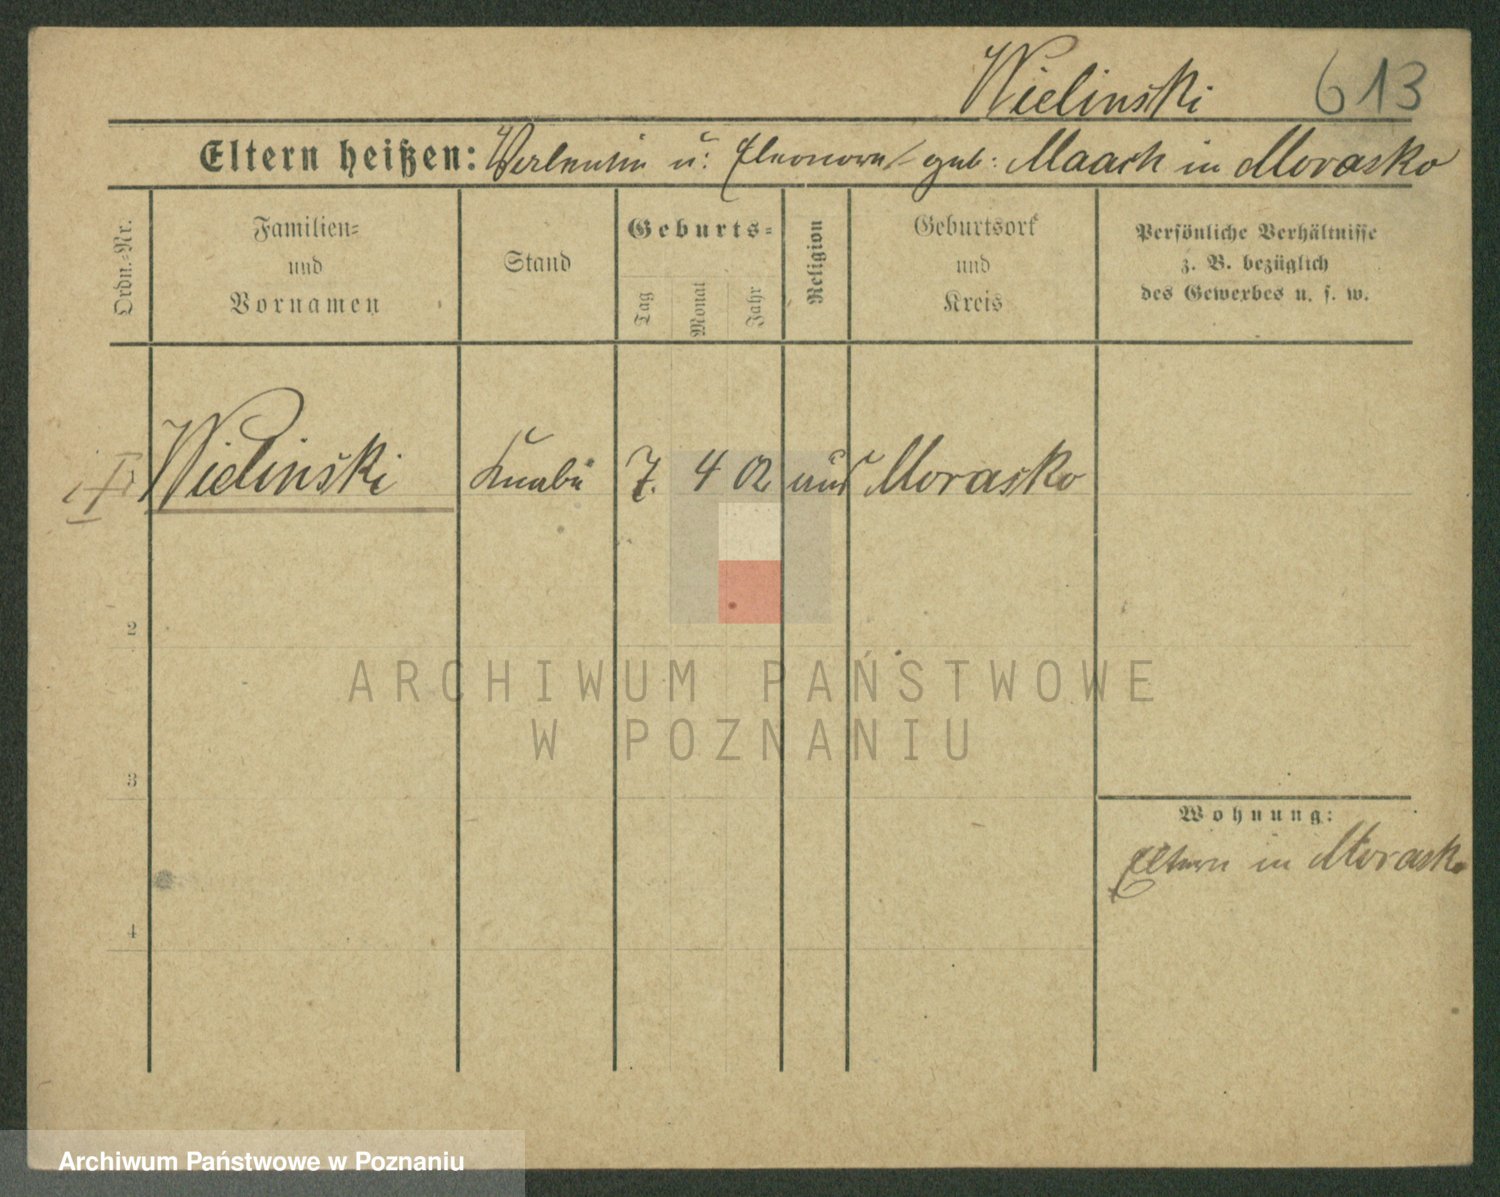 Wielinski 613
Eltern heißen: Valentin u: Eleonora geb: Maach in Morasko
Ordn.-Nr.
Familien-
und
Vornamen
Stand
Geburts-
Tag
Monat
Jahr
Religion
Geburtsort
und
Kreis
Persönliche Verhältnisse
z. B. bezüglich
des Gewerbes u. s. w.
Wielinski Knabe 7. 4 02 Morasko
2
ARCHIWUM PAŃSTWOWE
W POZNANIU
3
Wohnung:
Eltern in Morasko
4
Archiwum Państwowe w Poznaniu